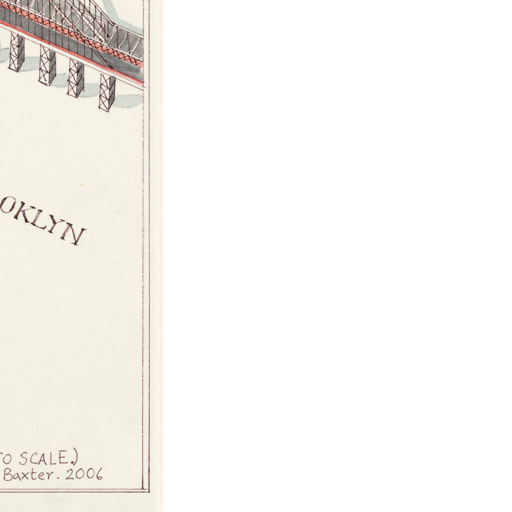 OKLYN
TO SCALE.)
Baxter. 2006